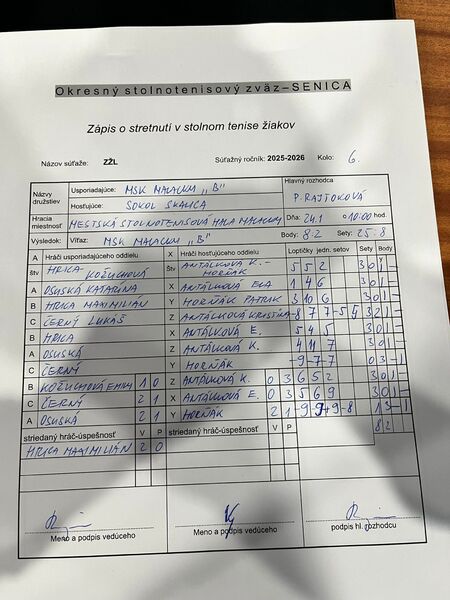 Okresný stolnotenisový zväz–SENICA
Zápis o stretnutí v stolnom tenise žiakov
Názov súťaže: ZŽL Súťažný ročník: 2025-2026 Kolo: 6.
Názvy družstiev Usporiadajúce: MSK MALACKY „B" Hlavný rozhodca
Hosťujúce: SOKOL SKALICA P. RAJTOKOVÁ
Hracia miestnosť MESTSKÁ STOLNOTENISOVÁ HALA MALACKY Dňa: 24.1 o 10:00 hod.
Výsledok: Víťaz: MSK MALACKY „B" Body: 8:2 Sety: 25:8
A Hráči usporiadajúceho oddielu X Hráči hosťujúceho oddielu Loptičky jedn. setov Sety Body
štv HRICA - KOŽUCHOVÁ Štv ANTÁLKOVÁ K. - HORŇÁK 5 5 2 3 0 1 -
A OSUSKÁ KATARÍNA X ANTÁLKOVÁ ELA 1 4 6 3 0 1 -
B HRICA MAXIMILIÁN Y HORŇÁK PATRIK 3 10 6 3 0 1 -
C ČERNÝ LUKÁŠ Z ANTÁLKOVÁ KRISTÍNA -8 7 7 -5 3 2 1 -
B HRICA X ANTÁLKOVÁ E. 5 4 5 3 0 1 -
A OSUSKÁ Z ANTÁLKOVÁ K. 4 11 7 3 0 1 -
C ČERNÝ Y HORŇÁK -9 -7 7 0 3 - 1
B KOŽUCHOVÁ EMILY 1 0 Z ANTÁLKOVÁ K. 0 3 6 5 2 3 0 1 -
C ČERNÝ 2 1 X ANTÁLKOVÁ E. 0 3 5 6 9 3 0 1 -
A OSUSKÁ 2 1 Y HORŇÁK 2 1 -9 9 -9 -8 1 3 - 1
striedaný hráč-úspešnosť V P striedaný hráč-úspešnosť V P 8 2
HRICA MAXIMILIÁN 2 0
Meno a podpis vedúceho Meno a podpis vedúceho podpis hl. rozhodcu